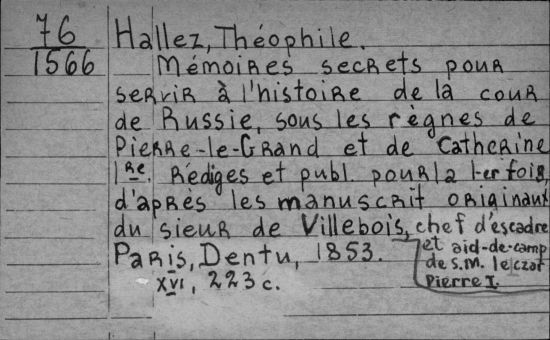 76
1566
Hallez, Théophile.
Mémoires secrets pour
servir à l'histoire de la cour
de Russie, sous les règnes de
Pierre-le-Grand et de Catherine
Ire. Rédiges et publ. pour la 1-er fois,
d'après les manuscrit originaux
du sieur de Villebois, chef d'escadre
et aid-de-camp
de S.M. le czar
Pierre I.
Paris, Dentu, 1853.
XVI, 223 c.